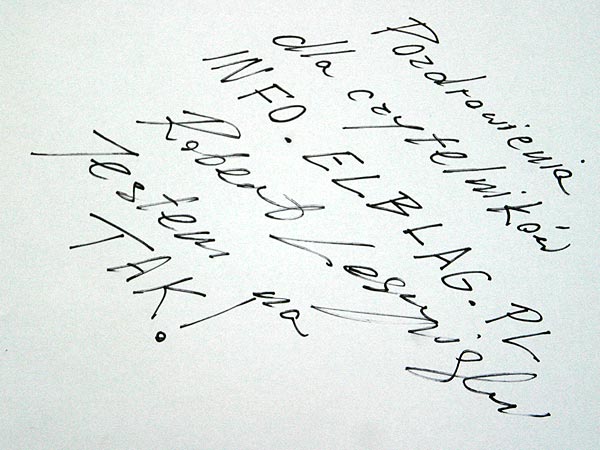 Pozdrowienia
dla czytelników
INFO.ELBLAG.PL
Robert
Jestem na
TAK!